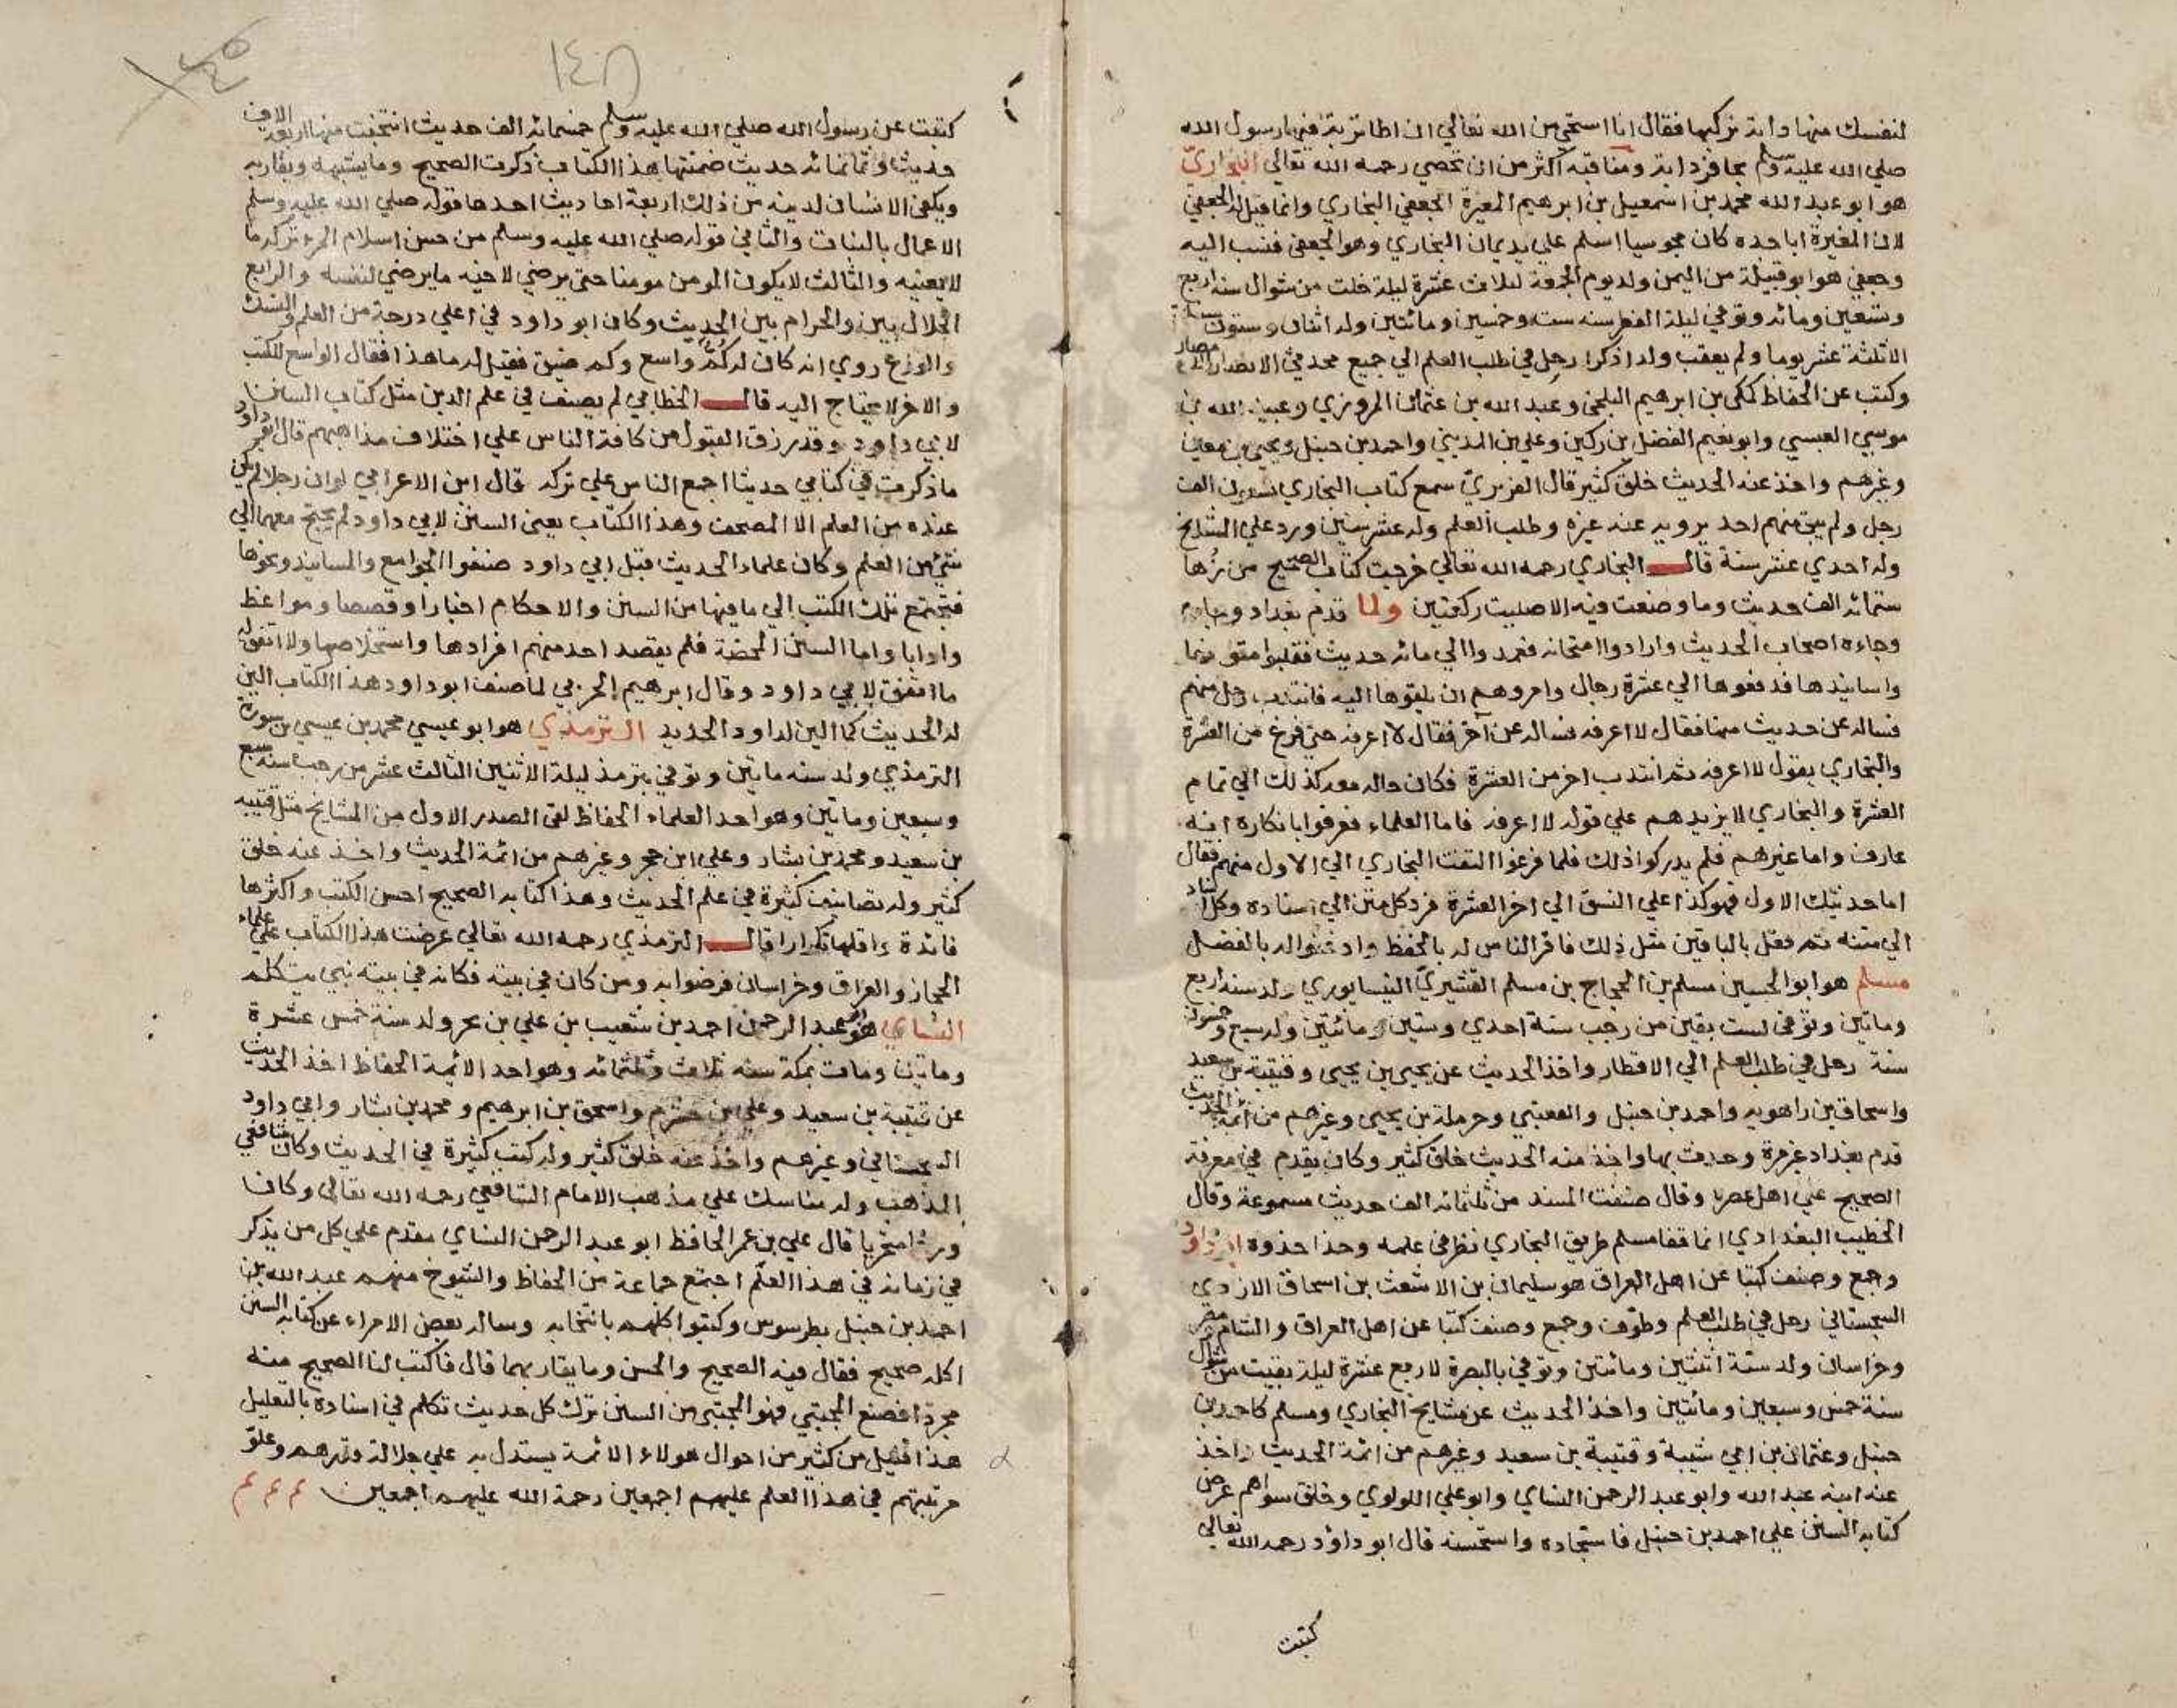 لنفسك منها دابة تركبها فقال انا استحي من الله تعالي ان اطا تربة فيها رسول الله
صلي الله عليه وسلم بحافر دابة ومناقبه اكثر من ان تحصي رحمه الله تعالي البخاري
هو ابو عبد الله محمد بن اسمعيل بن ابرهيم المغيرة الجعفي البخاري وانما قيل له الجعفي
لان المغيرة ابا جده كان مجوسيا اسلم علي يد يمان البخاري وهو الجعفي فنسب اليه
وجعفي هو ابو قبيلة من اليمن ولد يوم الجمعة لثلاث عشرة ليلة خلت من شوال سنة اربع
وتسعين ومائه وتوفي ليلة الفطر سنه ست وخمسين ومائتين وله اثنان وستون سنة
الا ثلثة عشر يوما ولم يعقب ولدا ذكرا رحل في طلب العلم الي جميع محدثي الامصار
وكتب عن الحفاظ كمكي بن ابرهيم البلخي وعبد الله بن عثمان المروزي وعبيد الله بن
موسي العبسي وابو نعيم الفضل بن ركين وعلي بن المديني واحمد بن حنبل ويحيي بن معين
وغيرهم واخذ عنه الحديث خلق كثير قال الفربري سمع كتاب البخاري تسعون الف
رجل ولم يبق منهم احد يرويه عنه غيره وطلب العلم وله عشر سنين ورد علي المشايخ
وله احدي عشر سنة قال البخاري رحمه الله تعالي خرجت كتاب الصحيح من زها
ستمائه الف حديث وما وضعت فيه الا صليت ركعتين ولما قدم بغداد
وجاءه اصحاب الحديث وارادوا امتحانه فعمدوا الي مائه حديث فقلبوا متونها
واسانيدها فدفعوها الي عشرة رجال وامروهم ان يلقوها اليه فانتدب رجل منهم
فساله عن حديث منها فقال لا اعرفه فساله عن آخر فقال لا اعرفه حتي فرغ من العشرة
والبخاري يقول لا اعرفه ثم انتدب اخر من العشرة فكان حاله معه كذلك الي تمام
العشرة والبخاري لا يزيدهم علي قوله لا اعرفه فاما العلماء فعرفوا بانكاره انه
عارف واما غيرهم فلم يدركوا ذلك فلما فرغوا التفت البخاري الي الاول منهم فقال
اما حديثك الاول فهو كذا علي النسق الي اخر العشرة فرد كل متن الي اسناده وكل اسناد
الي متنه ثم فعل بالباقين مثل ذلك فاقر الناس له بالحفظ واذعنوا له بالفضل
مسلم هو ابو الحسين مسلم بن الحجاج بن مسلم القشيري النيسابوري ولد سنة اربع
وماتين وتوفي لست بقين من رجب سنة احدي وستين ومائتين وله سبع وخمسون
سنة رحل في طلب العلم الي الاقطار واخذ الحديث عن يحيي بن يحيي وقتيبة بن سعيد
واسحاق بن راهويه واحمد بن حنبل والقعنبي وحرملة بن يحيي وغيرهم من ائمة الحديث
قدم بغداد غير مرة وحدث بها واخذ منه الحديث خلق كثير وكان يقدم في معرفة
الصحيح علي اهل عصره وقال صنفت المسند من ثلثمائه الف حديث مسموعة وقال
الخطيب البغدادي انما قفا مسلم طريق البخاري نظر في علمه وحذا حذوه ابو داود
وجمع وصنف كتبا عن اهل العراق هو سليمان بن الاشعث بن اسحاق الازدي
السجستاني رحل في طلب العلم وطوف وجمع وصنف كتبا عن اهل العراق والشام ومصر
وخراسان ولد سنة اثنتين ومائتين وتوفي بالبصرة لاربع عشرة ليلة بقيت من شوال
سنة خمس وسبعين ومائتين واخذ الحديث عن مشايخ البخاري ومسلم كاحمد بن
حنبل وعثمان بن ابي شيبة وقتيبة بن سعيد وغيرهم من ائمة الحديث واخذ
عنه ابنه عبد الله وابو عبد الرحمن النساي وابو علي اللولوي وخلق سواهم عرض
كتابه السنن علي احمد بن حنبل فاستجاده واستحسنه قال ابو داود رحمه الله تعالي
كتبت
١٤٨
كتبت عن رسول الله صلي الله عليه وسلم خمسمائه الف حديث انتخبت منها اربعة الاف
حديث وثمانمائه حديث ضمنتها هذا الكتاب ذكرت الصحيح وما يشبهه ويقاربه
ويكفي الانسان لدينه من ذلك اربعة احاديث احدها قوله صلي الله عليه وسلم
الاعمال بالنيات والثاني قوله صلي الله عليه وسلم من حسن اسلام المرء تركه ما
لا يعنيه والثالث لا يكون المومن مومنا حتي يرضي لاخيه ما يرضي لنفسه والرابع
الحلال بين والحرام بين الحديث وكان ابو داود في اعلي درجة من العلم والنسك
والورع روي انه كان له كم واسع وكم ضيق فقيل له ما هذا فقال الواسع للكتب
والاخر لا يحتاج اليه قال الخطابي لم يصنف في علم الدين مثل كتاب السنن
لابي داود وقد رزق القبول من كافة الناس علي اختلاف مذاهبهم قال ابو داود
ما ذكرت في كتابي حديثا اجمع الناس علي تركه قال ابن الاعرابي لو ان رجلا لم يكن
عنده من العلم الا المصحف وهذا الكتاب يعني السنن لابي داود لم يحتج معهما الي
شئ من العلم وكان علماء الحديث قبل ابي داود صنفوا الجوامع والمسانيد ونحوها
فتجتمع تلك الكتب الي ما فيها من السنن والاحكام اخبارا وقصصا ومواعظ
وادابا واما السنن المحضة فلم يقصد احد منهم افرادها واستخلاصها ولا اتفق له
ما اتفق لابي داود وقال ابرهيم الحربي لما صنف ابو داود هذا الكتاب الين
له الحديث كما الين لداود الحديد الترمذي هو ابو عيسي محمد بن عيسي بن سورة
الترمذي ولد سنه ماتين وتوفي بترمذ ليلة الاثنين الثالث عشر من رجب سنة تسع
وسبعين وماتين وهو احد العلماء الحفاظ لقي الصدر الاول من المشايخ مثل قتيبه
بن سعيد ومحمد بن بشار وعلي ابن حجر وغيرهم من ائمة الحديث واخذ عنه خلق
كثير وله تصانيف كثيرة في علم الحديث وهذا كتابه الصحيح احسن الكتب واكثرها
فائدة واقلها تكرارا قال الترمذي رحمه الله تعالي عرضت هذا الكتاب علي علماء
الحجاز والعراق وخراسان فرضوا به ومن كان في بيته فكانه في بيته نبي يتكلم
النساي هو ابو عبد الرحمن احمد بن شعيب بن علي بن بحر ولد سنة خمس عشرة
وماتين ومات بمكة سنه ثلاث وثلثمائه وهو احد الائمة الحفاظ اخذ الحديث
عن قتيبة بن سعيد وعلي بن خشرم واسحق بن ابرهيم ومحمد بن بشار وابي داود
السجستاني وغيرهم واخذ عنه خلق كثير وله كتب كثيرة في الحديث وكان شافعي
المذهب وله مناسك علي مذهب الامام الشافعي رحمه الله تعالي وكان
ورعا متحريا قال علي بن عمر الحافظ ابو عبد الرحمن النساي مقدم علي كل من يذكر
في زمانه في هذا العلم اجتمع جماعة من الحفاظ والشيوخ منهم عبد الله بن
احمد بن حنبل بطرسوس وكتبوا كلهم بانتخابه وساله بعض الامراء عن كتابه السنن
اكله صحيح فقال فيه الصحيح والحسن وما يقاربهما قال فاكتب لنا الصحيح منه
مجردا فصنع المجتبي فهو المجتبي من السنن ترك كل حديث تكلم في اسناده بالتعليل
هذا قليل من كثير من احوال هولاء الائمة يستدل به علي جلالة قدرهم وعلو
مرتبتهم في هذا العلم عليهم اجمعين رحمة الله عليهم اجمعين م م م